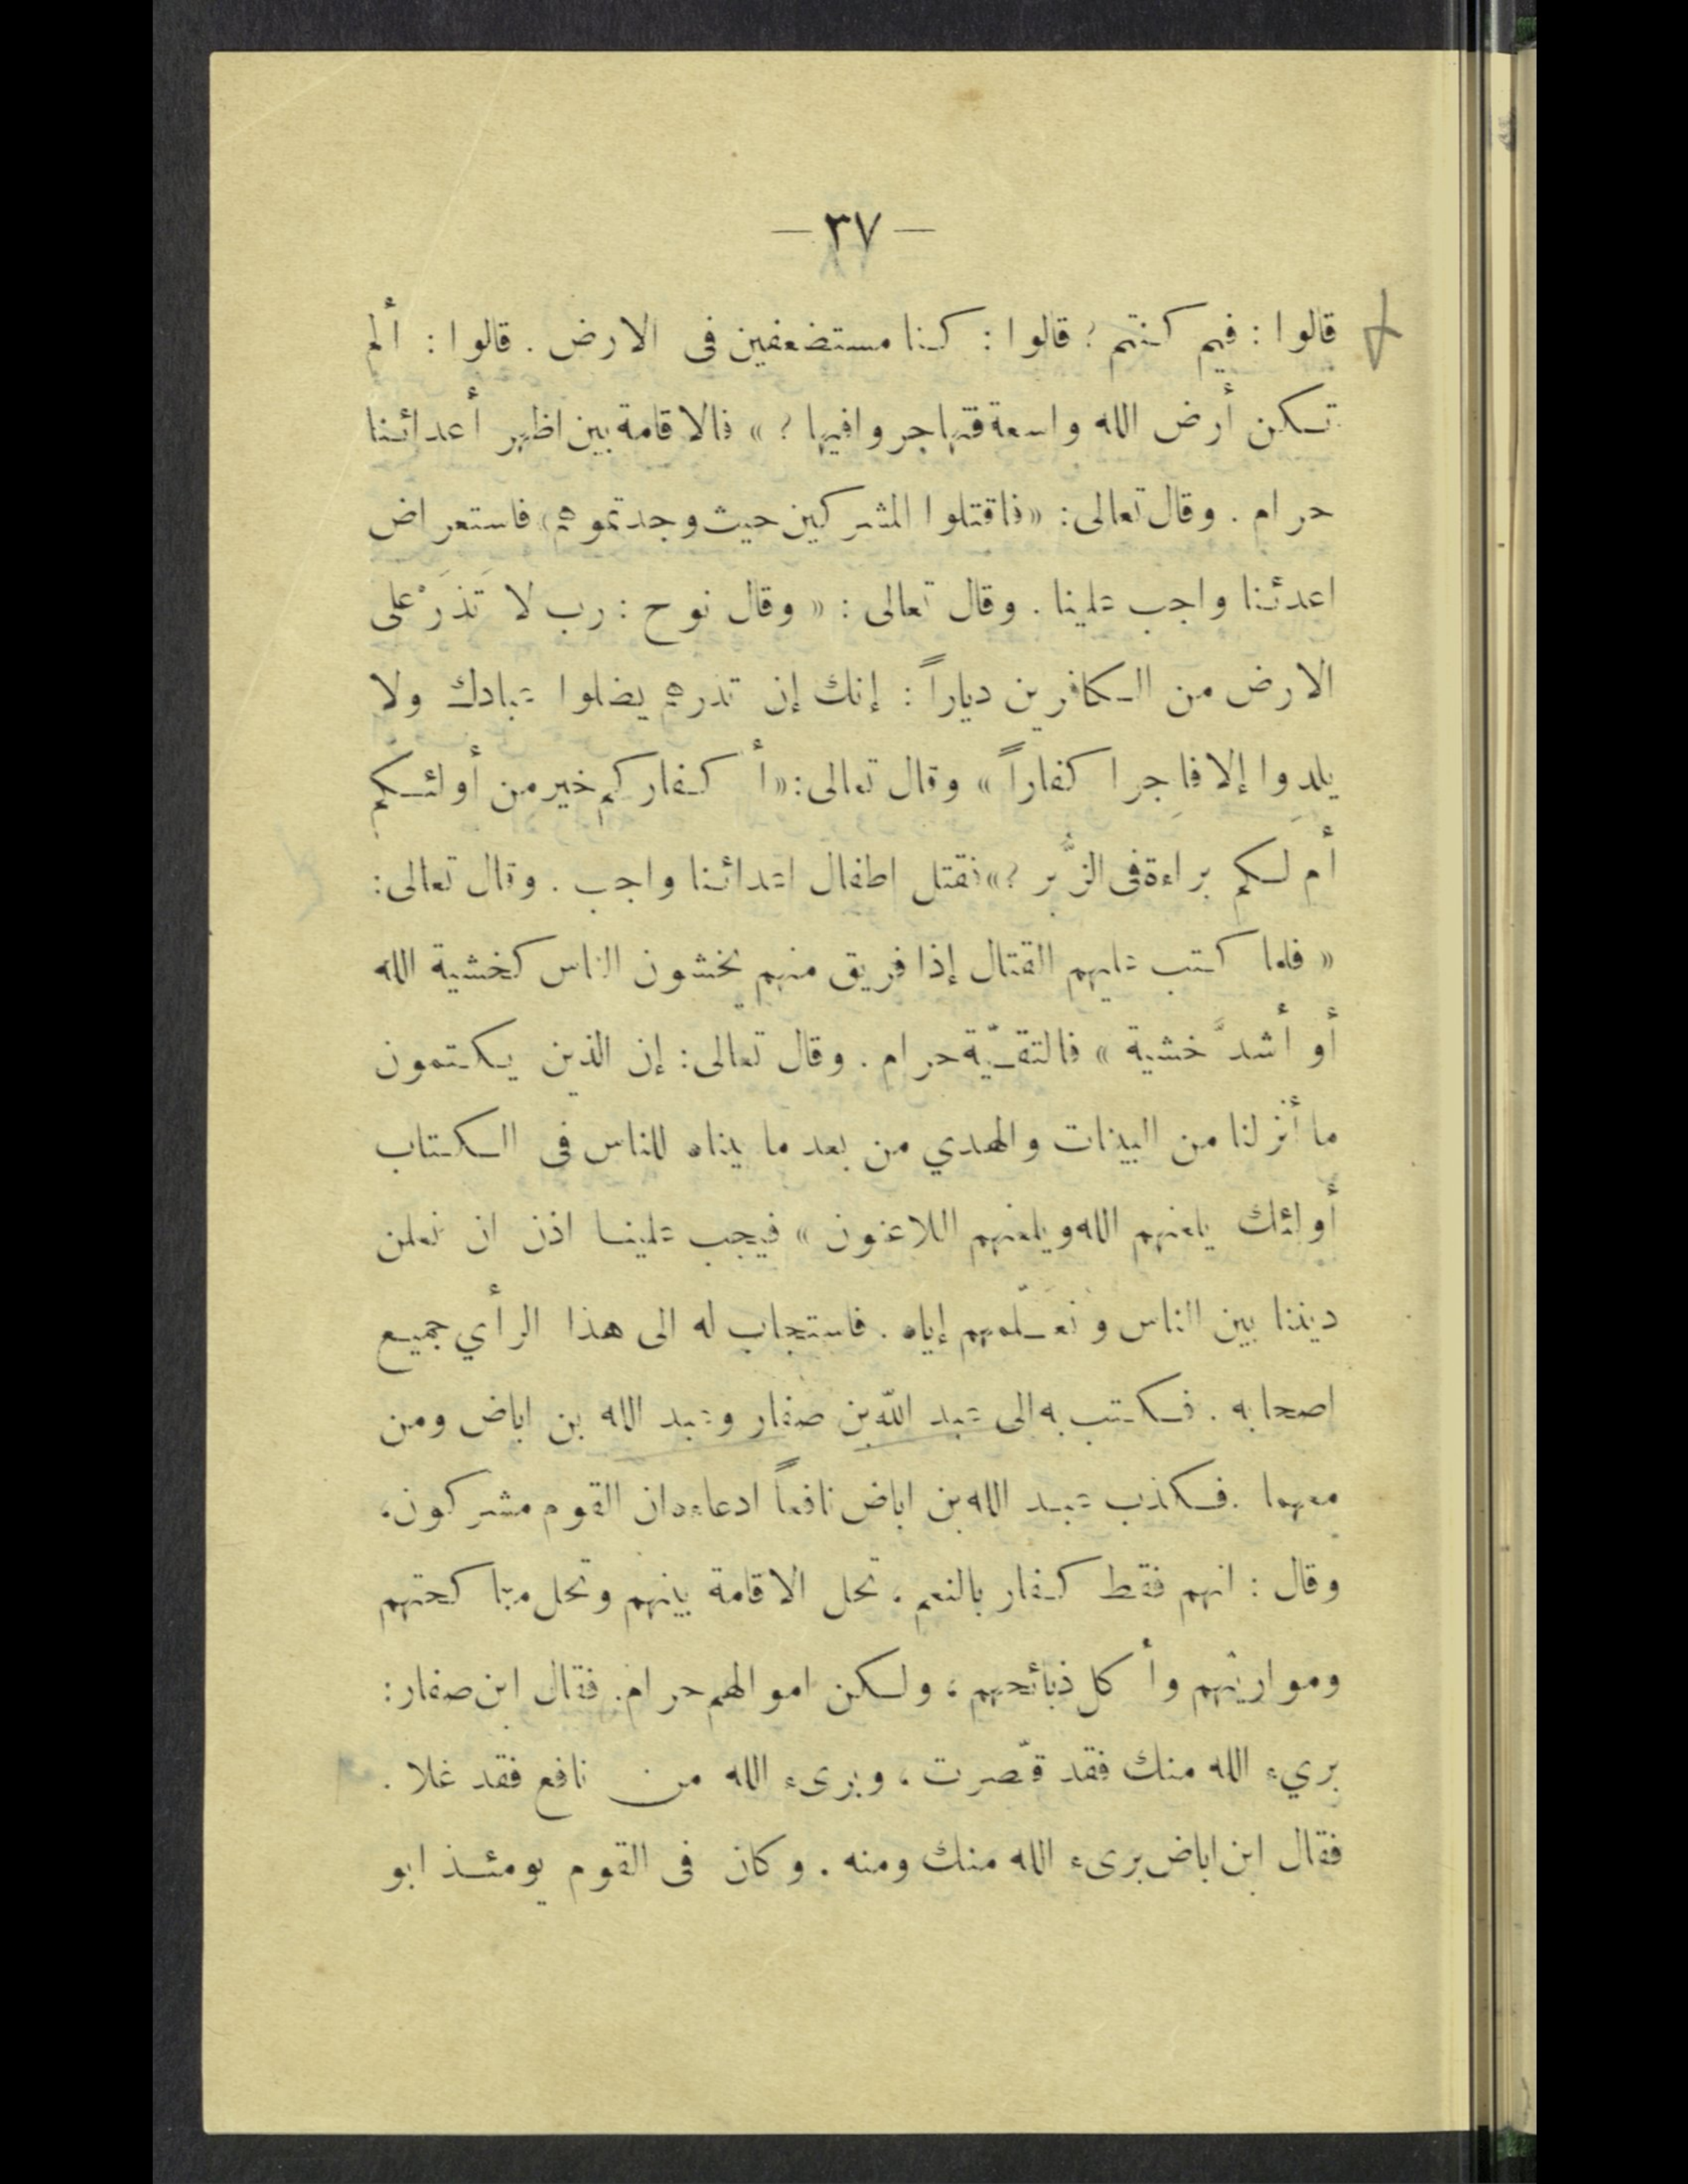 — ٣٧ —
قالوا : فيم كنتم ؟ قالوا : كنا مستضعفين فى الارض . قالوا : ألم
تكن أرض الله واسعة فتهاجروا فيها ؟ » فالاقامة بين اظهر أعدائنا
حرام . وقال تعالى : « فاقتلوا المشركين حيث وجدتموهم » فاستعراض
اعدئنا واجب علينا . وقال تعالى : « وقال نوح : رب لا تَذَرْ على
الارض من الكافرين دياراً : إنك إن تذرهم يضلوا عبادك ولا
يلدوا إلا فاجرا كفاراً » وقال تعالى : « أكفاركم خير من أولئكم
أم لكم براءة فى الزُّبر ؟ » فقتل اطفال اعدائنا واجب . وقال تعالى :
« فلما كتب عليهم القتال إذا فريق منهم يخشون الناس كخشية الله
أو أشدَّ خشية » فالتقيّة حرام . وقال تعالى : إن الذين يكتمون
ما أنزلنا من البينات والهدي من بعد ما بيناه للناس فى الكتاب
أولئك يلعنهم الله ويلعنهم اللاعنون » فيجب علينا اذن ان نعلن
ديننا بين الناس ونعلّمهم إياه . فاستجاب له الى هذا الرأي جميع
اصحابه . فكتب به الى عبد الله بن صفار وعبد الله بن اباض ومن
معهما . فكذب عبد الله بن اباض نافعاً ادعاءه ان القوم مشركون ،
وقال : انهم فقط كفار بالنعم ، تحل الاقامة بينهم وتحل مناكحتهم
ومواريثهم وأكل ذبائحهم ، ولكن اموالهم حرام . فقال ابن صفار :
بريء الله منك فقد قصّرت ، وبرىء الله من نافع فقد غلا .
فقال ابن اباض برىء الله منك ومنه . وكان فى القوم يومئذ ابو